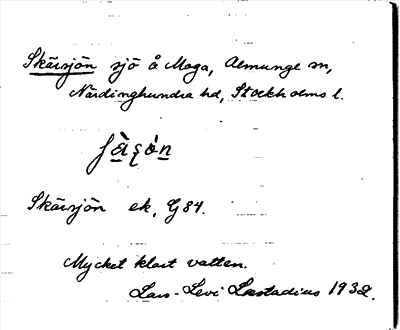 Skärsjön sjö å Moga, Almunge sn,
Närdinghundra hd, Stockholms l.
Skärsjön ek. G 84.
Mycket klart vatten.
Lars-Levi Læstadius 1932.